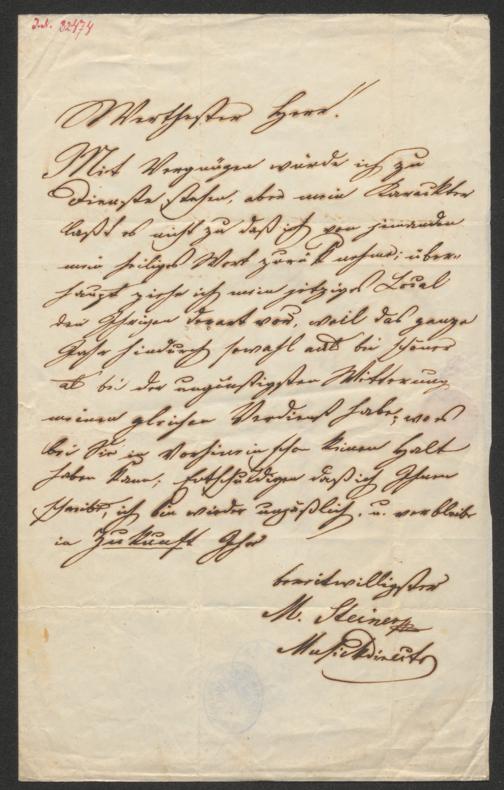 Int. 22474
Werthester Herr!
Mit Vergnügen würde ich zu
Dienste stehen, aber mein Karackter
laßt es nicht zu daß ich von jemanden
mein heiliges Wort zurük nehme; über-
haupt ziehe ich mein jetziges Local
den Ihrigen derart vor, weil das ganze
Jahr hindurch sowohl als bei schöner
als bei der ungünstigsten Witterung
meinen gleichen Verdienst habe, wo es
bei Sie in Vorhinein schon keinen Halt
haben kann; Entschuldigen daß ich Ihnen
schreibe, ich bin wieder unpäßlich, u. verbleibe
in Zukunft Ihr
bereitwilligster
M. Steiner
Musickdirector